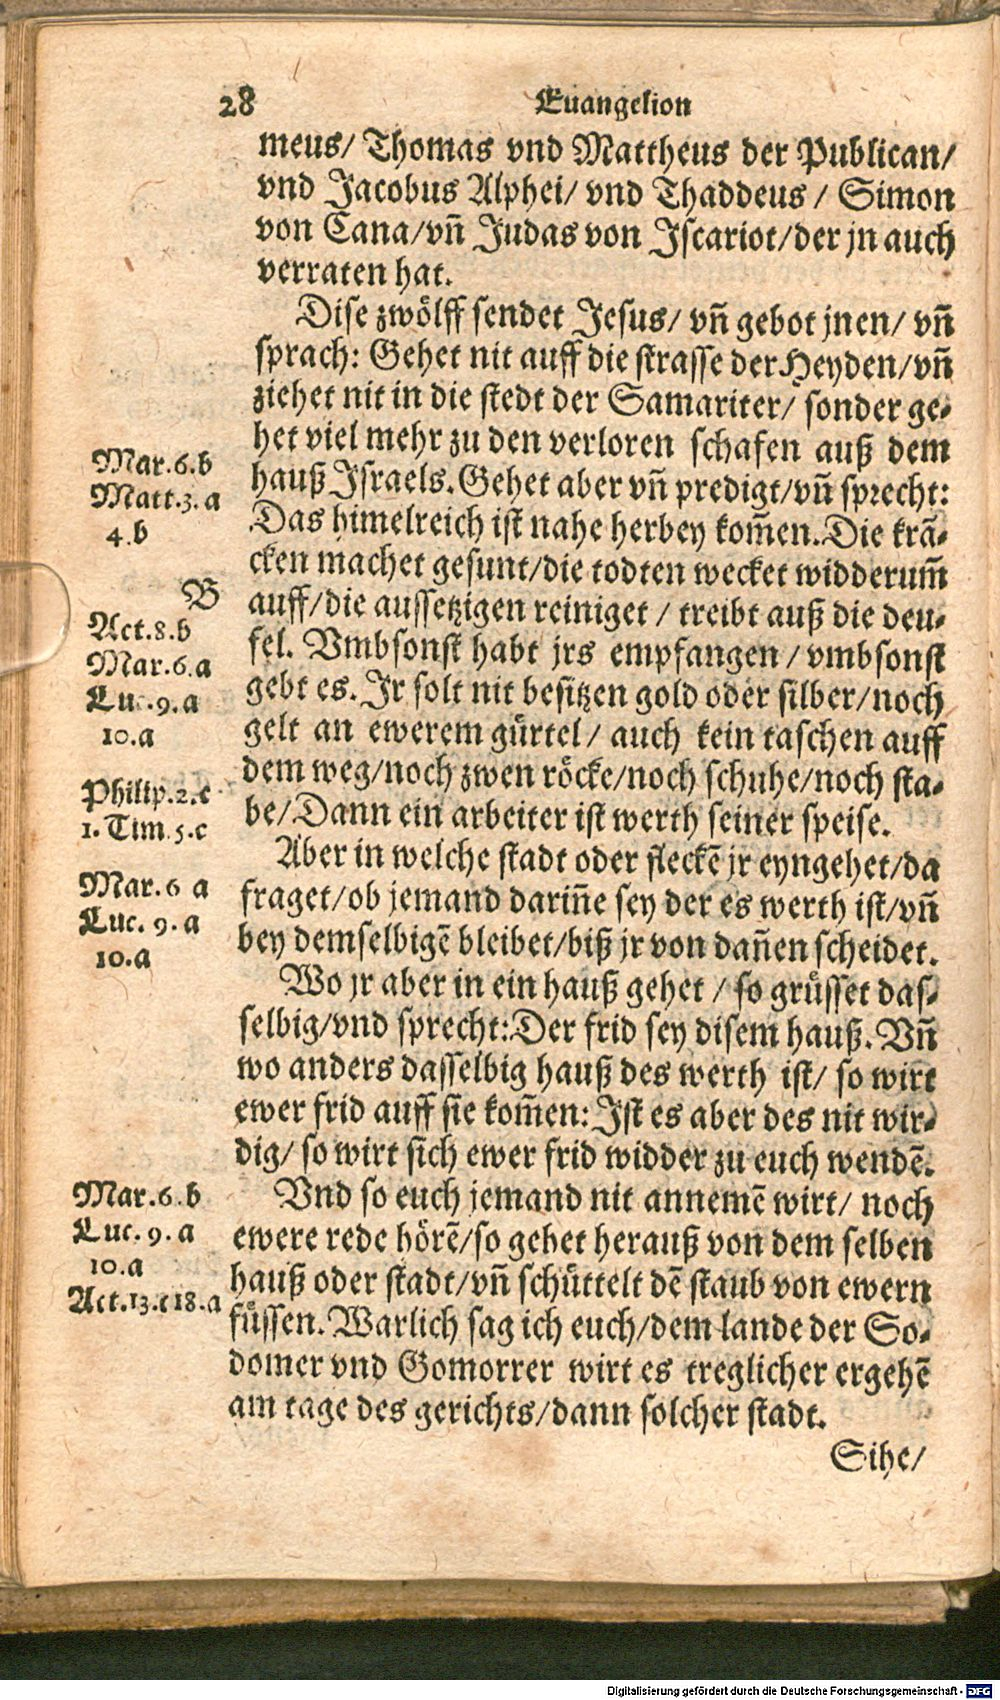 28 Euangelion
meus/ Thomas vnd Mattheus der Publican/
vnd Jacobus Alphei/ vnd Thaddeus / Simon
von Cana/vñ Judas von Iscariot/der jn auch
verraten hat.
Dise zwölff sendet Jesus/ vñ gebot jnen/ vñ
sprach: Gehet nit auff die strasse der Heyden/vñ
ziehet nit in die stedt der Samariter/ sonder ge-
het viel mehr zu den verloren schafen auß dem
Mar.6.b
hauß Israels. Gehet aber vñ predigt/vñ sprecht:
Matt.3.a
Das himelreich ist nahe herbey kom̃en. Die krã-
4.b
cken machet gesunt/die todten wecket widderum̃
B
auff/die aussetzigen reiniget / treibt auß die deu-
Act.8.b
fel. Vmbsonst habt jrs empfangen / vmbsonst
Mar.6.a
gebt es. Ir solt nit besitzen gold oder silber/noch
Luc.9.a
gelt an ewerem gürtel/ auch kein taschen auff
10.a
dem weg/noch zwen röcke/noch schuhe/noch sta-
Philip.2.c
be/Dann ein arbeiter ist werth seiner speise.
1.Tim 5.c
Aber in welche stadt oder fleckẽ jr eyngehet/da
Mar.6 a
fraget/ob jemand darin̄e sey der es werth ist/vñ
Luc. 9.a
bey demselbigẽ bleibet/biß jr von dan̄en scheidet.
10.a
Wo jr aber in ein hauß gehet / so grüsset das-
selbig/vnd sprecht: Der frid sey disem hauß. Vñ
wo anders dasselbig hauß des werth ist/ so wirt
ewer frid auff sie kom̃en: Ist es aber des nit wir-
dig/ so wirt sich ewer frid widder zu euch wendẽ.
Mar.6.b
Vnd so euch jemand nit annemẽ wirt/ noch
Luc. 9.a
ewere rede hörẽ/so gehet herauß von dem selben
10.a
hauß oder stadt/vñ schüttelt dẽ staub von ewern
Act.13.c 18.a
füssen. Warlich sag ich euch/dem lande der So-
domer vnd Gomorrer wirt es treglicher ergehẽ
am tage des gerichts/dann solcher stadt.
Sihe/
Digitalisierung gefördert durch die Deutsche Forschungsgemeinschaft - DFG